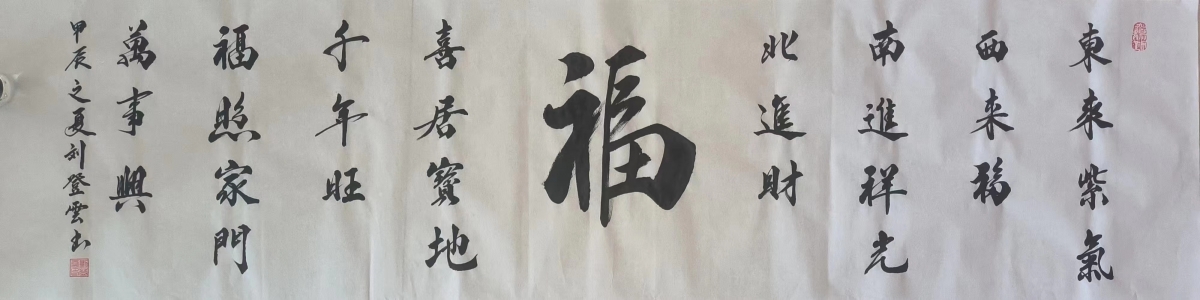 東來紫氣
西来福
南進祥光
北進財
福
喜居寳地
千年旺
福照家門
萬事興
甲辰之夏刘登雲书